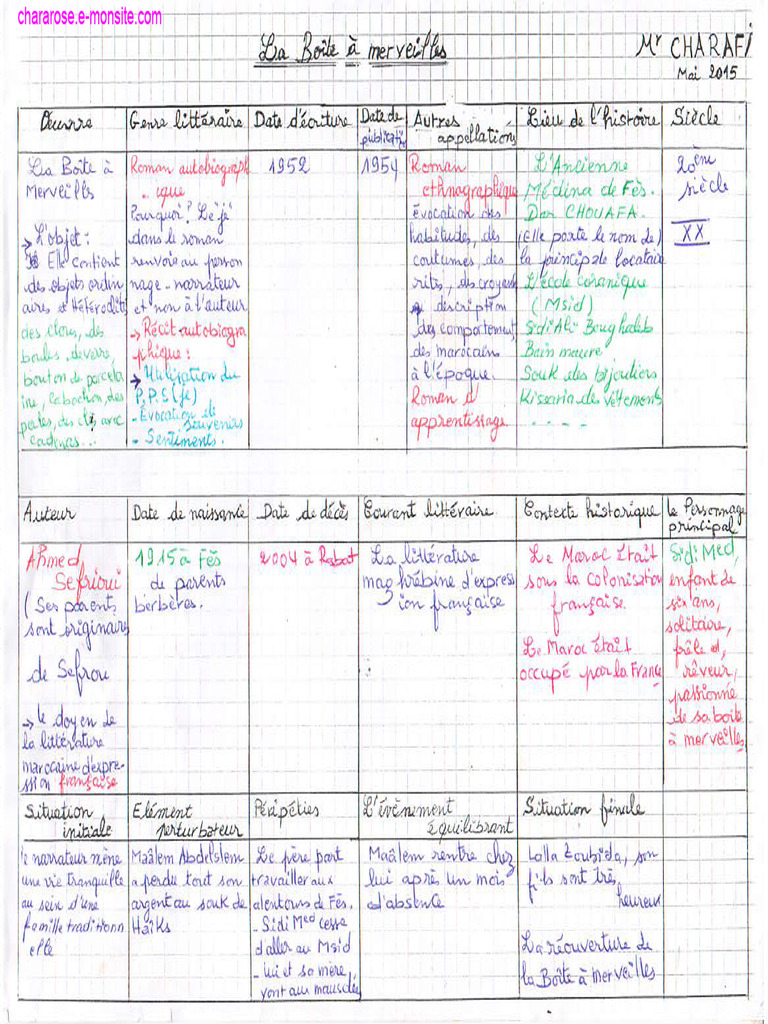 chararose.e-monsite.com
La Boîte à merveilles
Mr CHARAFI
Mai 2015
Œuvre
Genre littéraire
Date d'écriture
Date de
publication
Autres
appellations
Lieu de l'histoire
Siècle
La Boîte à
Merveills
→ L'objet :
Elle contient
des objets ordin
aires et Hétéroclits
des clous, des
boules de verre,
bouton de porcela
ine, cabochon, des
perles, des clés avec
cadenas...
Roman autobiograph
ique
Pourquoi? Le "je"
dans le roman
renvoie au person
nage-narrateur
et non à l'auteur
→ Récit autobiogra
phique :
→ Utilisation du
P.P.S (je)
- Évocation de
souvenirs
- Sentiments.
1952
1954
Roman
ethnographique
évocation des
habitudes, des
coutumes, des
rits, des croyan
description
des comportement
des marocains
à l'époque.
Roman d'
apprentissage
L'Ancienne
Médina de Fès.
Dar CHOUAFA.
(Elle porte le nom de)
la principale locataire
L'école coranique
(Msid)
Sidi Ali Boughaleb
Bain maure
Souk des bijoutiers
Kissaria des vêtements
.....
20ème
siècle
XX
Auteur
Date de naissance
Date de décès
Courant littéraire
Contexte historique
le Personnage
principal
Ahmed
Sefrioui
(Ses parents
sont originaires
de Sefrou
→ le doyen de
la littérature
marocaine d'expre
ssion française
1915 à Fès
de parents
berbères.
2004 à Rabat
La littérature
maghrébine d'express
ion française
Le Maroc Était
sous la colonisation
française.
Le Maroc Était
occupé par la France
Sidi Med,
enfant de
six ans,
solitaire,
frêle et,
rêveur,
passionné
de sa boite
à merveilles
Situation
initiale
Elément
perturbateur
Péripéties
L'évènement
équilibrant
Situation finale
le narrateur mène
une vie tranquille
au sein d'une
famille traditionn
elle
Maâlem Abdelslem
a perdu tout son
argent au souk de
Haïks
Le père part
travailler aux
alentours de Fès.
- Sidi Med cesse
d'aller au Msid
- lui et sa mère
vont aux mausolées
Maâlem rentre chez
lui après un mois
d'absence
Lalla Zoubida, son
fils sont très
heureux
La réouverture de
la Boîte à merveilles